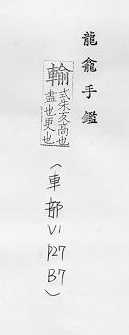 龍龕手鑑
輸
式朱反高也
盡也更也
(車部V1
p27
B7)